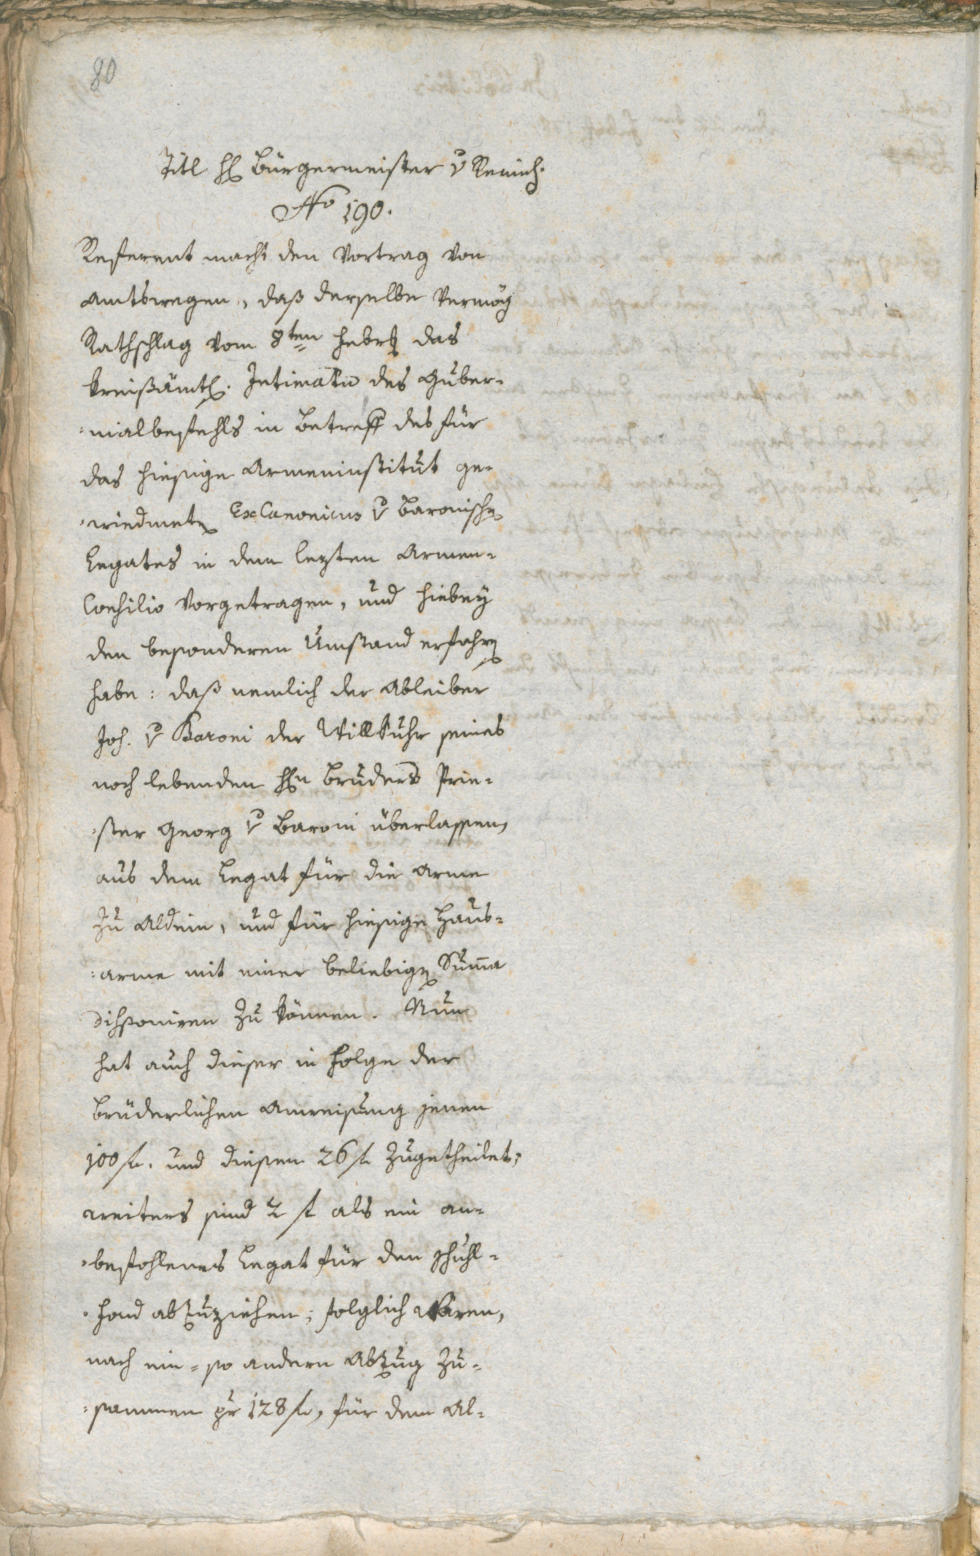 80
Titl H H Bürgermeister v Remich.
No 190.
Referent macht den Vortrag von
Amtswegen, daß derselbe vermög
Rathschlag vom 8ten Febr das
kreißämtl. Intimatu des Guber-
nialbefehls in Betreff des für
das hiesige Armeninstitut ge-
wiedmete Ex Canonicus v Baronische
Legates in dem lezten Armen-
Consilio vorgetragen, und hiebey
den besonderen Umstand erfahren
habe: daß nemlich der Ableiber
Joh. v Baroni der Willkuhr seines
noch lebenden Hn Bruders Prie-
ster Georg v Baroni überlassen,
aus dem Legat für die Arme
zu Aldein, und für hiesige Haus-
arme mit einer beliebigen Suma
dißponiren zu können. Nun
hat auch dieser in Folge der
brüderlichen Anweisung jenen
100 f. und diesen 26 f zugetheilet;
weiters sind 2 f als ein an-
befohlenes Legat für den Schuhl-
fond abzuziehen; folglich waren,
nach ein- so andern Abzug zu-
sammen pr 128 f, für dem Al-